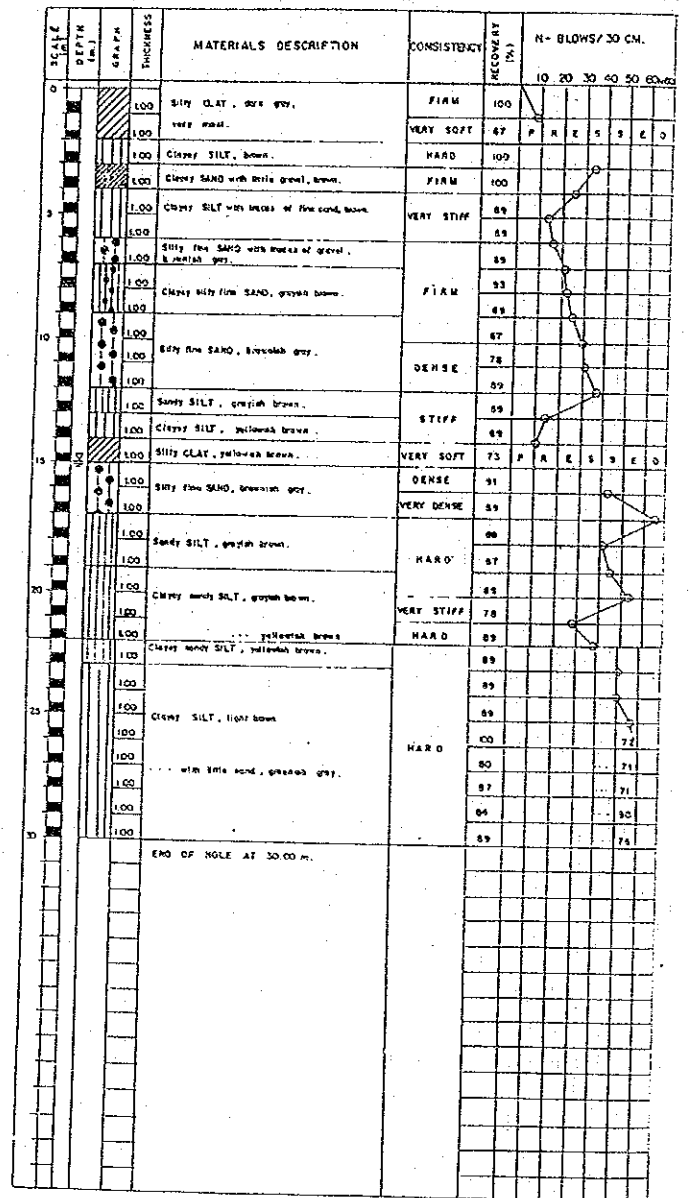 SCALE m. DEPTH (m.) GRAPH THICKNESS MATERIALS DESCRIPTION CONSISTENCY RECOVERY (%) N- BLOWS/ 30 CM.
10 20 30 40 50 60
0
1.00 Silty CLAY, dark gray, FIRM 100
1.00 very moist. VERY SOFT 67 P R E S S E D
1.00 Clayey SILT, brown. HARD 100
1.00 Clayey SAND with little gravel, brown. FIRM 100
1.00 Clayey SILT with traces of fine sand, brown. VERY STIFF 89
5 1.00 89
1.00 Silty fine SAND with traces of gravel, brownish gray. 89
1.00 Clayey silty fine SAND, grayish brown. FIRM 93
1.00 89
10 1.00 Silty fine SAND, brownish gray. 67
1.00 DENSE 78
1.00 89
1.00 Sandy SILT, grayish brown. STIFF 89
1.00 Clayey SILT, yellowish brown. 89
15 1.00 Silty CLAY, yellowish brown. VERY SOFT 73 P R E S S E D
1.00 Silty fine SAND, brownish gray. DENSE 91
1.00 VERY DENSE 89
1.00 Sandy SILT, grayish brown. HARD
67
20 1.00 Clayey sandy SILT, grayish brown. 89
1.00 VERY STIFF 78
1.00 ... yellowish brown HARD 89
1.00 Clayey sandy SILT, yellowish brown. 89
1.00 89
25 1.00 Clayey SILT, light brown 89
1.00 HARD 100 72
1.00 ... with little sand, greenish gray. 80 ... 71
1.00 87 ... 71
1.00 84 ...
30 1.00 89
END OF HOLE AT 30.00 m.